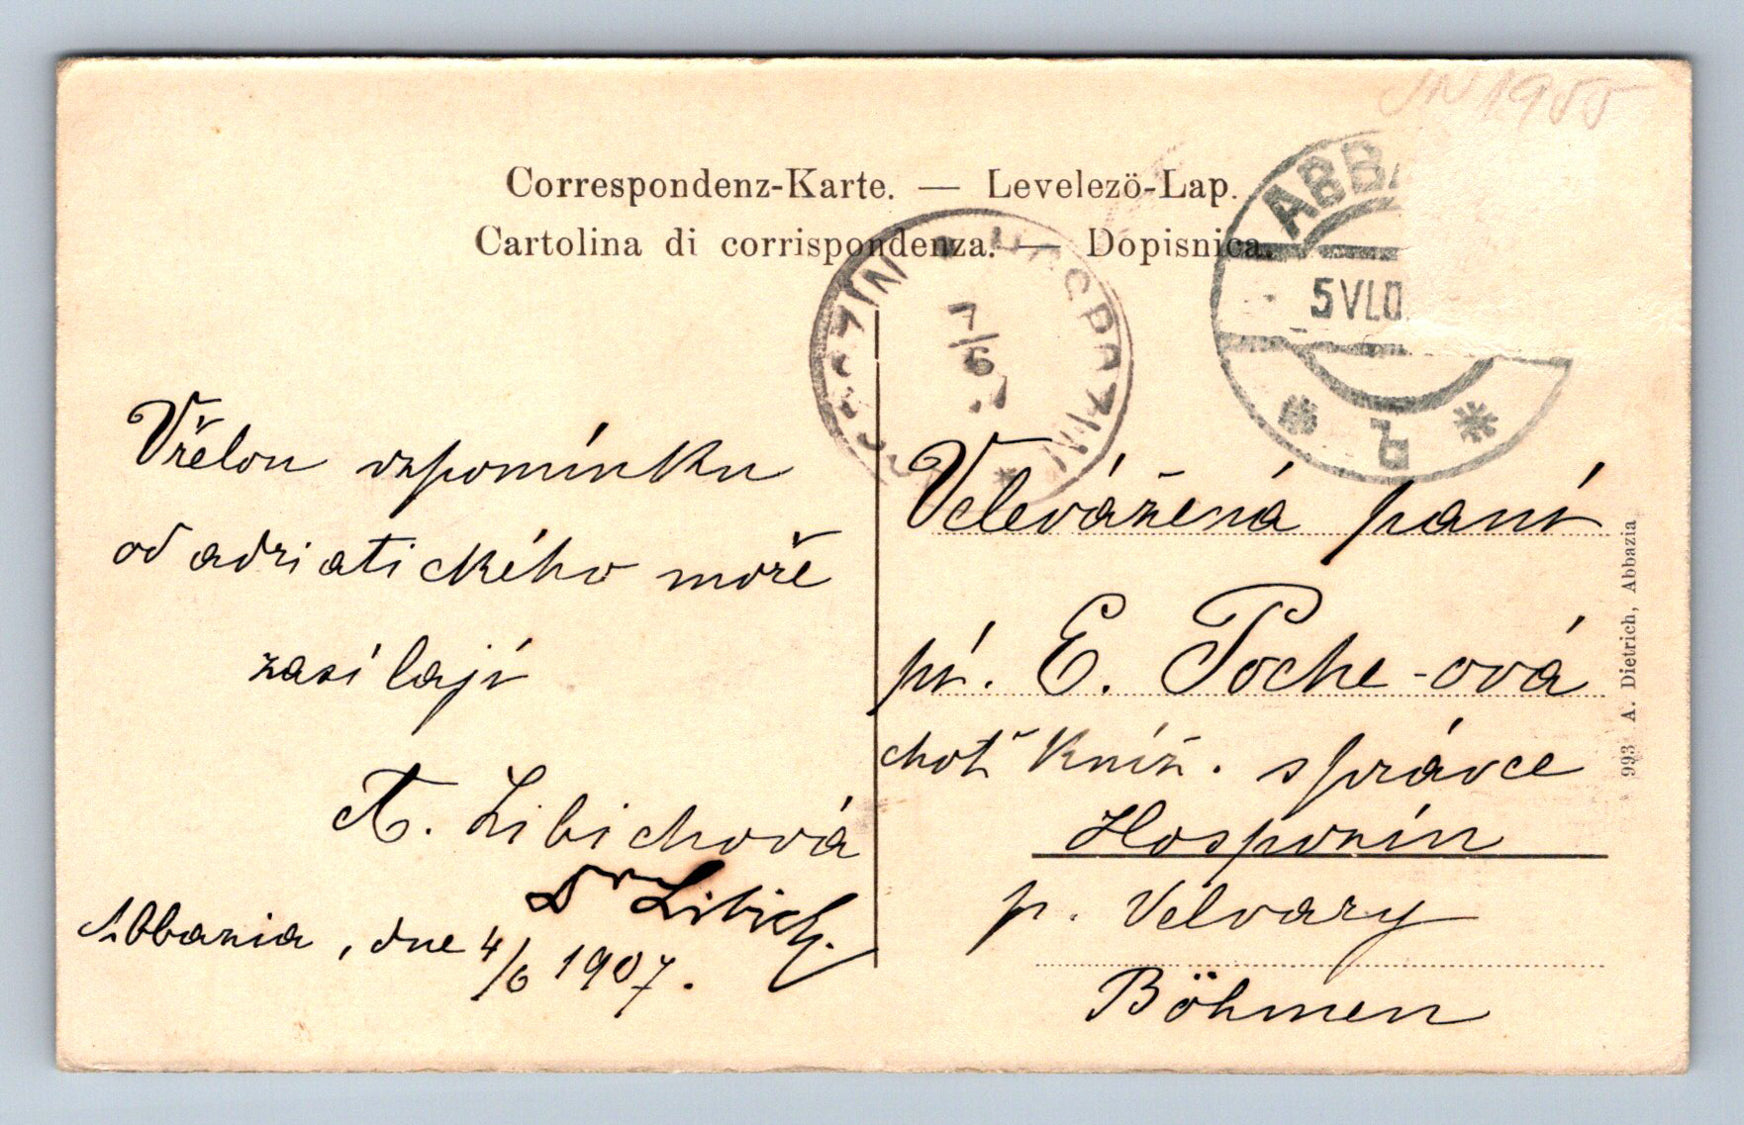 JN 1955
Correspondenz-Karte. — Levelezö-Lap.
Cartolina di corrispondenza. — Dopisnica.
ABB
5 VI 0
7/6
Vřelou vzpomínku
od adriatického moře
zasílají
A. Libichová
Dr Libich.
Abbazia, dne 4/6 1907.
Velevážená paní
pí. E. Poche-ová
choť kníž. správce
Hospozín
p. Velvary
Böhmen
993 A. Dietrich, Abbazia